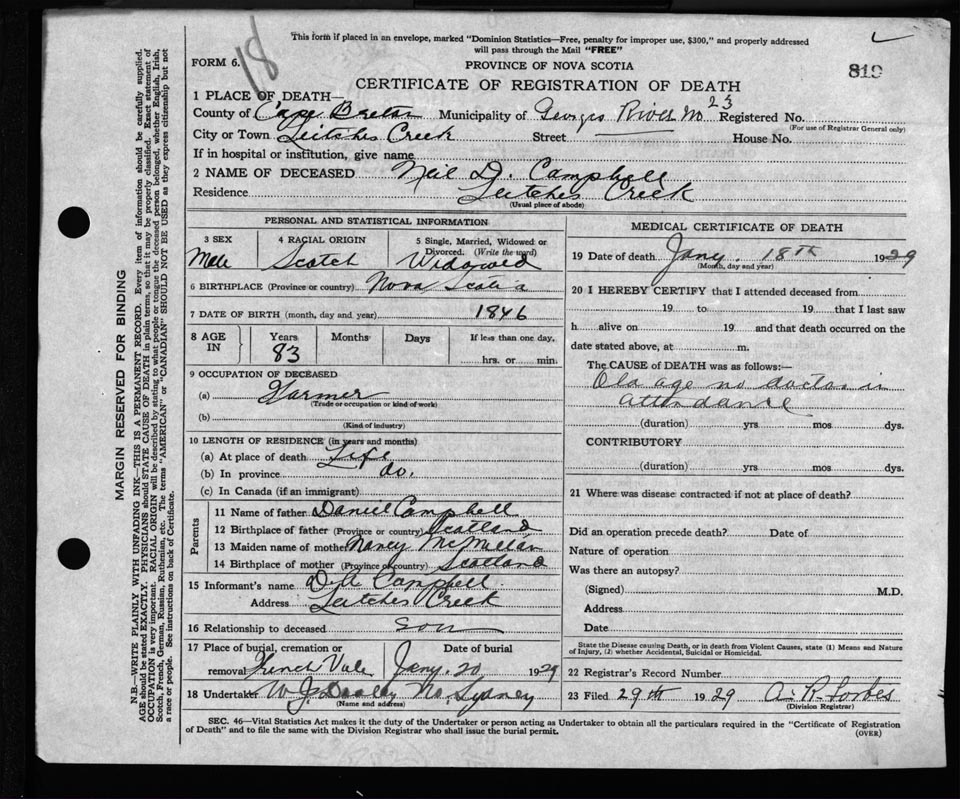 This form if placed in an envelope, marked "Dominion Statistics—Free, penalty for improper use, $300," and properly addressed
will pass through the Mail "FREE"
FORM 6.
18
PROVINCE OF NOVA SCOTIA
819
CERTIFICATE OF REGISTRATION OF DEATH
1 PLACE OF DEATH—
County of Cape Breton Municipality of Georges River No 23 Registered No.
(For use of Registrar General only)
City or Town Leitches Creek Street House No.
If in hospital or institution, give name
2 NAME OF DECEASED Neil D. Campbell
Residence Leitches Creek
(Usual place of abode)
PERSONAL AND STATISTICAL INFORMATION
3 SEX 4 RACIAL ORIGIN 5 Single, Married, Widowed or Divorced. (Write the word)
Male Scotch Widowed
6 BIRTHPLACE (Province or country) Nova Scotia
7 DATE OF BIRTH (month, day and year) 1846
8 AGE IN Years Months Days If less than one day,
83 hrs. or min.
9 OCCUPATION OF DECEASED
(a) Farmer
(Trade or occupation or kind of work)
(b)
(Kind of industry)
10 LENGTH OF RESIDENCE (in years and months)
(a) At place of death Life
(b) In province do.
(c) In Canada (if an immigrant)
Parents
11 Name of father Daniel Campbell
12 Birthplace of father (Province or country) Scotland
13 Maiden name of mother Nancy McMillan
14 Birthplace of mother (Province or country) Scotland
15 Informant's name D. A. Campbell
Address Leitches Creek
16 Relationship to deceased son
17 Place of burial, cremation or removal French Vale Date of burial Jany. 20 1929
18 Undertaker W. J. Dooley No. Sydney
(Name and address)
MEDICAL CERTIFICATE OF DEATH
19 Date of death Jany. 18th 1929
(Month, day and year)
20 I HEREBY CERTIFY that I attended deceased from
19 to 19 that I last saw
h alive on 19 and that death occurred on the
date stated above, at m.
The CAUSE of DEATH was as follows:—
Old age no doctor in
attendance
(duration) yrs mos dys.
CONTRIBUTORY
(duration) yrs mos dys.
21 Where was disease contracted if not at place of death?
Did an operation precede death? Date of
Nature of operation
Was there an autopsy?
(Signed) M.D.
Address
Date
State the Disease causing Death, or in death from Violent Causes, state (1) Means and Nature
of Injury, (2) whether Accidental, Suicidal or Homicidal.
22 Registrar's Record Number
23 Filed 29th 1929 A. R. Forbes
(Division Registrar)
SEC. 46—Vital Statistics Act makes it the duty of the Undertaker or person acting as Undertaker to obtain all the particulars required in the "Certificate of Registration
of Death" and to file the same with the Division Registrar who shall issue the burial permit.
(OVER)
MARGIN RESERVED FOR BINDING
N.B.—WRITE PLAINLY WITH UNFADING INK—THIS IS A PERMANENT RECORD. Every item of information should be carefully supplied.
AGE should be stated EXACTLY. PHYSICIANS should STATE CAUSE OF DEATH in plain terms, so that it may be properly classified. Exact statement of
OCCUPATION is very important. RACIAL ORIGIN will be described by stating to what people or tongue the deceased person belonged, whether English, Irish,
Scotch, French, German, Russian, Ruthenian, etc. The terms "AMERICAN" or "CANADIAN" SHOULD NOT BE USED as they express citizenship but not
a race or people. See instructions on back of Certificate.